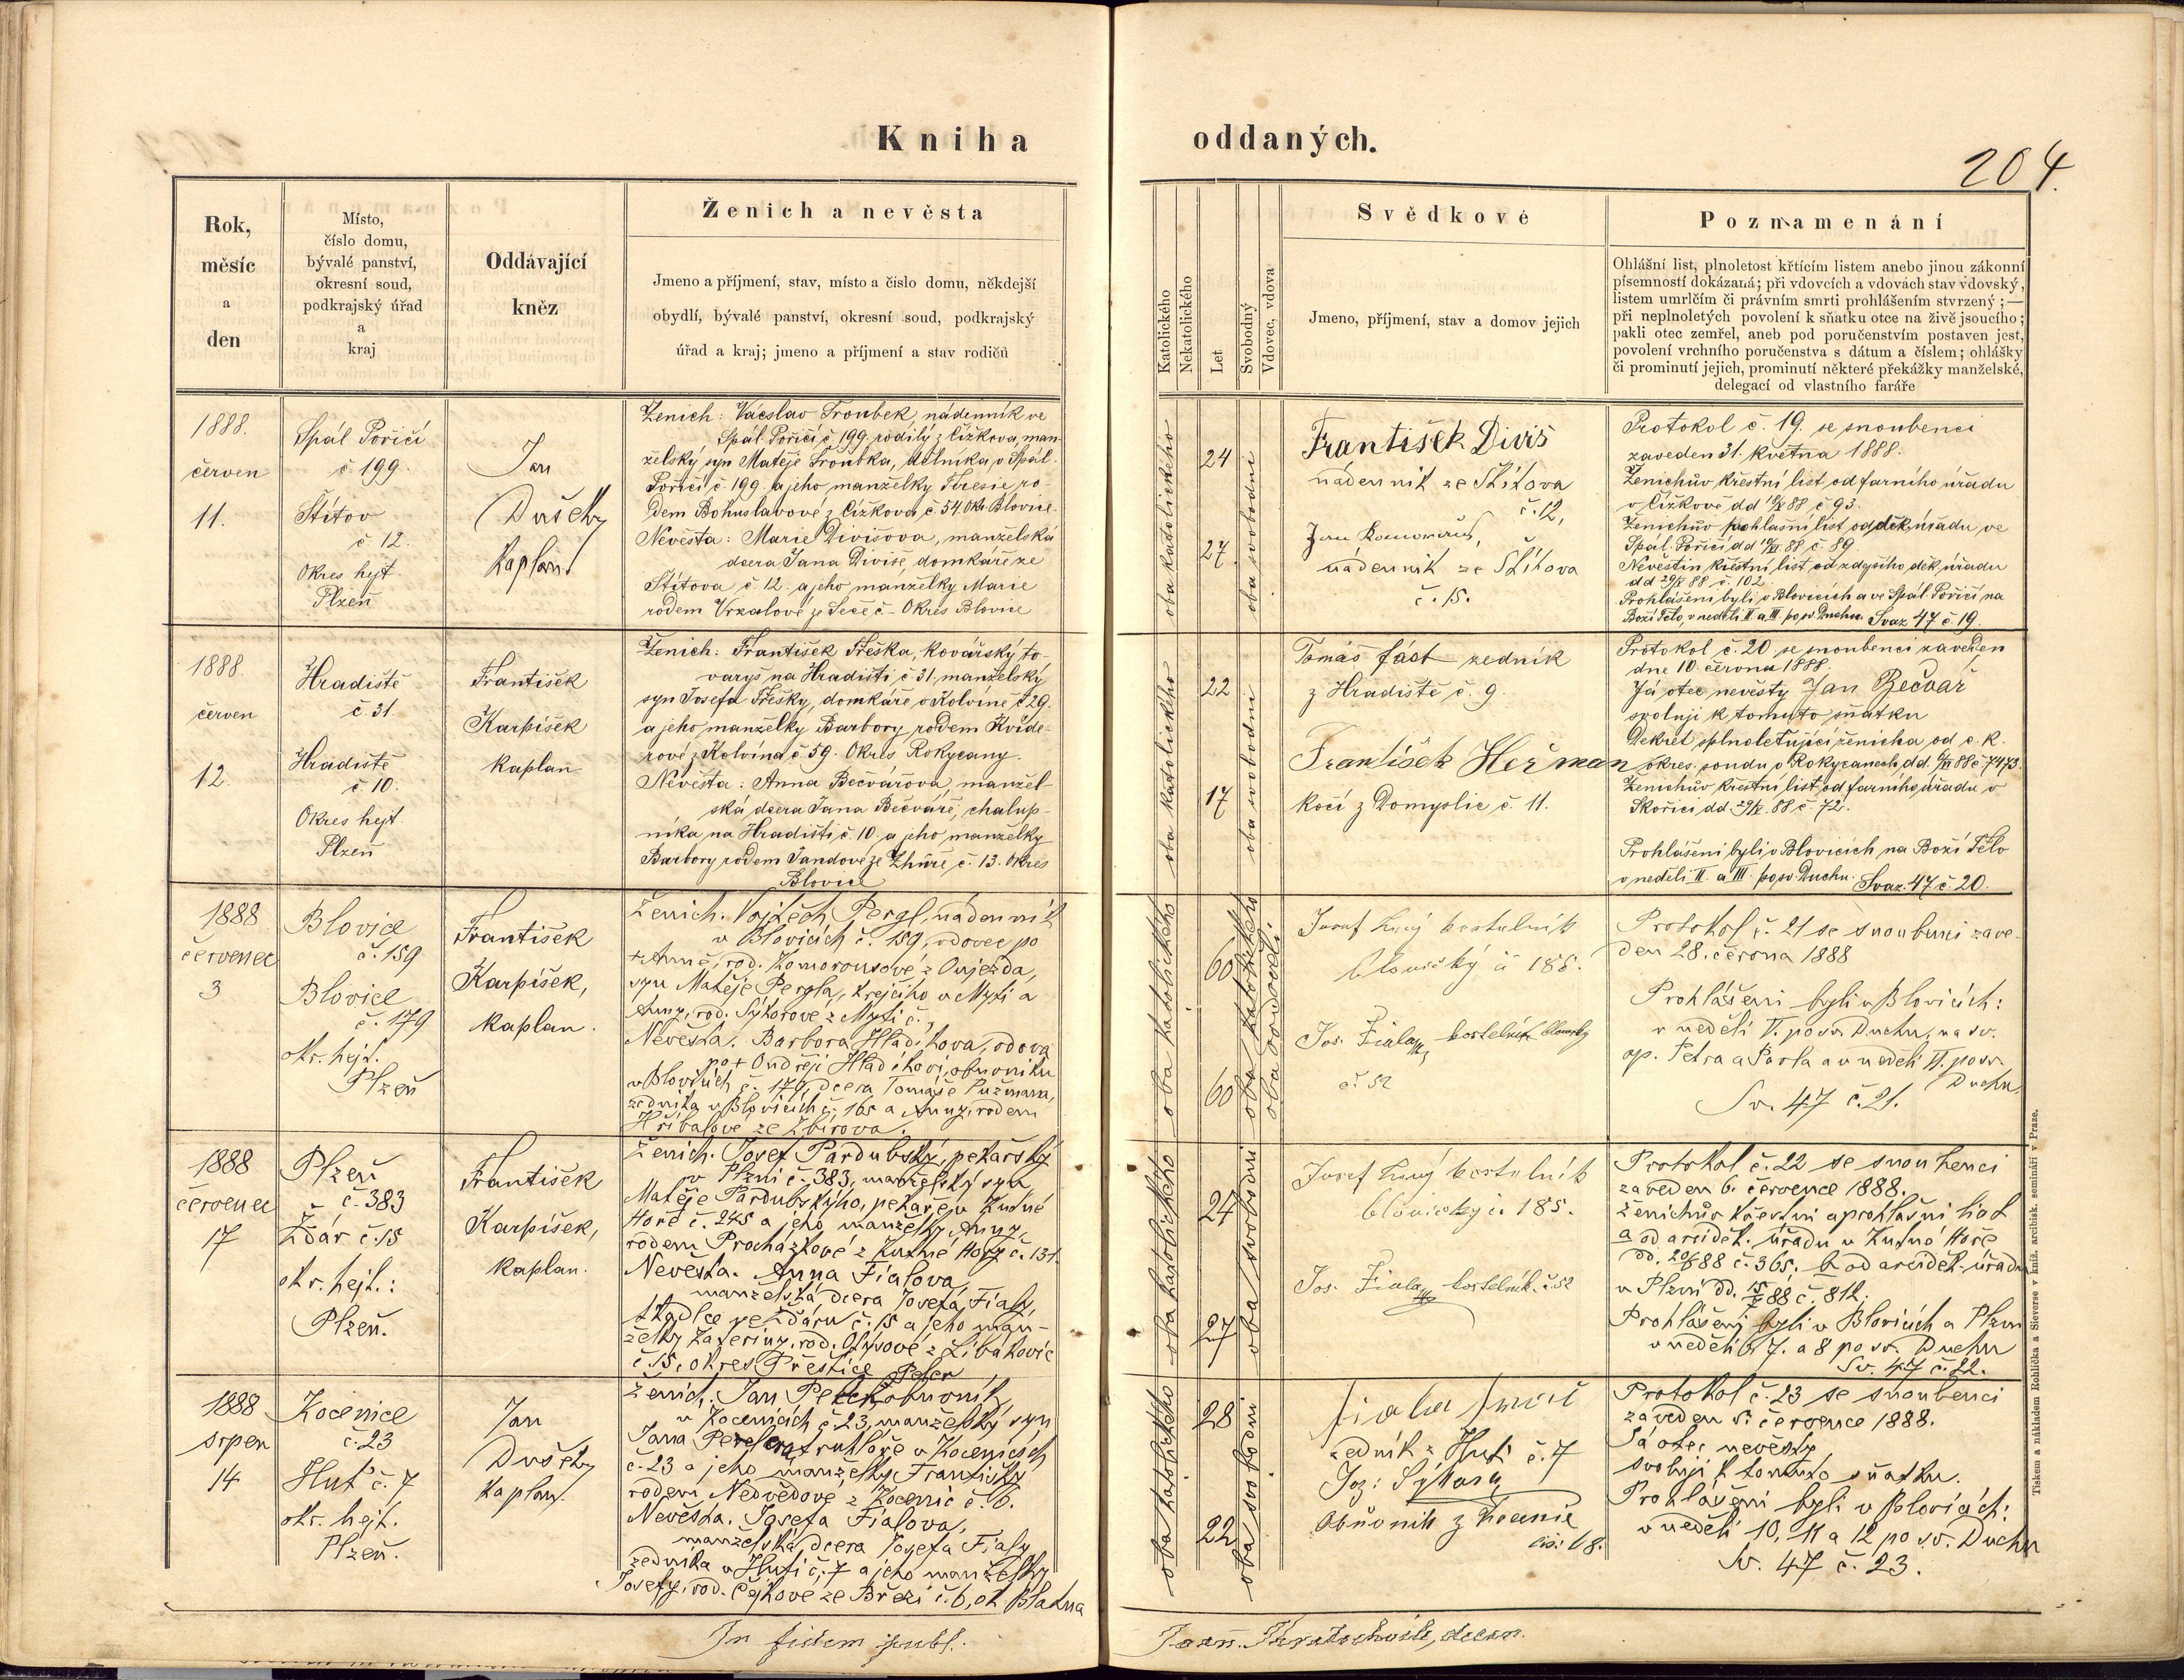 Kniha oddaných.
204.
Rok,
měsíc
a
den
Místo,
číslo domu,
bývalé panství,
okresní soud,
podkrajský úřad
a
kraj
Oddávající
kněz
Ženich a nevěsta
Jmeno a příjmení, stav, místo a číslo domu, někdejší
obydlí, bývalé panství, okresní soud, podkrajský
úřad a kraj; jmeno a příjmení a stav rodičů
Katolického
Nekatolického
Let
Svobodný
Vdovec, vdova
Svědkové
Jmeno, příjmení, stav a domov jejich
Poznamenání
Ohlášní list, plnoletost křtícím listem anebo jinou zákonní
písemností dokázaná; při vdovcích a vdovách stav vdovský,
listem umrlčím či právním smrti prohlášením stvrzený; —
při neplnoletých povolení k sňatku otce na živě jsoucího;
pakli otec zemřel, aneb pod poručenstvím postaven jest,
povolení vrchního poručenstva s dátum a číslem; ohlášky
či prominutí jejich, prominutí některé překážky manželské,
delegací od vlastního faráře
1888.
červen
11.
Spál Poříčí
č 199.
Štítov
č 12.
Okres hejt.
Plzeň
Jan
Dušek
Kaplan
Ženich: Václav Troubek, nádenník ve
Spál. Poříčí č 199. rodilý z Čížkova, man-
želský syn Matěje Troubka, dělníka, v Spál.
Poříčí č. 199. a jeho manželky Teresie ro-
dem Bohuslavové z Čížkova č 54. Okr. Blovice.
Nevěsta: Marie Divišova, manželská
dcera Jana Diviše, domkáře ze
Štítova č 12. a jeho manželky Marie
rodem Vrzalové ze Seče č – Okres Blovice
oba katolického
24
27.
oba svobodni
František Diviš
nádenník ze Štítova
č. 12,
Jan
nádenník ze Štítova
č. 15.
Protokol č. 19. se snoubenci
zaveden 31. května 1888.
Ženichův křestní list od farního úřadu
v Čížkově dd 88 č 93.
Ženichův prohlašní list od děk. úřadu ve
Spál. Poříčí dd 88 č. 89.
Nevěstin křestní list od zdejšího děk. úřadu
dd 29/V 88 č. 102.
Prohlášeni byli v Blovicích a ve Spál. Poříčí na
Boží Tělo, v neděli II. a III. po sv. Duchu. Svaz 47 č. 19.
1888.
červen
12.
Hradiště
č. 31.
Hradiště
č. 10.
Okres hejt
Plzeň
František
Karpíšek
kaplan
Ženich: František Třeška, kovářský to-
varyš na Hradišti č 31, manželský
syn Josefa Třešky, domkáře v Kolvíně č 29.
a jeho manželky Barbory rodem Kvíde-
rové z Kolvína č 59. Okres Rokycany.
Nevěsta: Anna Bečvářova, manžel-
ská dcera Jana Bečváře, chalup-
níka na Hradišti č. 10. a jeho manželky
Barbory rodem Jandové ze Zhůře č. 13. Okres
Blovice
oba katolického
22
17
oba svobodni
Tomáš Fášt zedník
z Hradiště č. 9.
František Heřman
kočí z Domyslic č. 11.
Protokol č. 20. se snoubenci zaveden
dne 10. června 1888.
Já otec nevěsty Jan Bečvář
svoluji k tomuto sňatku
Dekret splnoletňující ženicha od c. k.
okres. soudu v Rokycanech, dd. 88 č. 7473.
Ženichův křestní list od farního úřadu v
Skořici dd. 29/V. 88 č. 72.
Prohlášeni byli v Blovicích na Boží Tělo
v neděli II. a III. po sv. Duchu. Svaz. 47 č. 20.
1888
červenec
3
Blovice
č. 159
Blovice
č. 179
okr. hejt.
Plzeň
František
Karpíšek,
kaplan.
Ženich. Vojtěch Pergl, nádenník
v Blovicích č. 159, vdovec po
+ Anně, rod. Komorousové z Oujezda,
syn Matěje Pergla, krejčího v Myti a
Anny, rod. Sýkorové z Myti č.,
Nevěsta. Barbora Hladíkova, vdova
po + Ondřeji Hladíkovi, obuvníku
v Blovicích č. 179, dcera Tomáše Pužmana,
zedníka v Blovicích č. 165 a Anny, rodem
Hříbalové ze Zbirova.
oba katolického
60
60
oba katolického
oba ovdovělí
Josef kostelník
blovický č 185.
Jos. Fiala kostelník blovický
č. 52
Protokol č. 21 se snoubenci zave-
den 28. června 1888
Prohlášeni byli v Blovicích:
v neděli V. po sv. Duchu, na sv.
ap. Petra a Pavla a v neděli VI. po sv.
Duchu.
Sv. 47 č. 21.
1888
červenec
17
Plzeň
č. 383
Ždár č. 15
okr. hejt.:
Plzeň.
František
Karpíšek,
kaplan.
Ženich. Josef Pardubský, pekařský
v Plzni č. 383, manželský syn
Matěje Pardubského, pekaře v Kutné
Hoře č. 245 a jeho manželky Anny,
rodem Procházkové z Kutné Hory č. 131.
Nevěsta. Anna Fialova,
manželská dcera Josefa Fialy,
tkadlce ve Ždáru č. 15 a jeho man-
želky Kateřiny, rod. Olysové z Libákovic
č. 15, okres Přeštice
oba katolického
24
27
oba svobodni
Josef kostelník
blovický č. 185.
Jos. Fiala kostelník. č. 52
Protokol č. 22 se snoubenci
zaveden 6. července 1888.
Ženichův křestní a prohlašní list
a od arciděk. úřadu v Kutné Hoře
dd. 88 č. 365. b od arciděk. úřadu
v Plzni dd. 88 č. 812.
Prohlášeni byli v Blovicích a Plzni
v neděli 6, 7. a 8 po sv. Duchu
Sv. 47 č. 22.
1888
srpen
14
Kocenice
č. 23
Huť č. 7
okr. hejt.
Plzeň.
Jan
Dušek
kaplan.
Peler
Ženich. Jan obuvník,
v Kocenicích č. 23, manželský syn
Jana truhláře v Kocenicích
č. 23 a jeho manželky Františky
rodem Nedvědové z Kocenic č. 6.
Nevěsta. Josefa Fialova,
manželská dcera Josefa Fialy,
zedníka v Huti č. 7 a jeho manželky
Josefy, rod. Čejkové ze Březi č. 6, ok. Blatna
oba katolického
28
22
oba svobodni
Fiala
zedník z Huti č. 7
Joz: Sýkora
Obuvník z Kocenic
čís: 18.
Protokol č. 23 se snoubenci
zaveden 5. července 1888.
Já otec nevěsty
svoluji k tomuto sňatku.
Prohlášeni byli v Blovicích:
v neděli 10, 11 a 12 po sv. Duchu
Sv. 47 č. 23.
In fidem publ.
Joann. Kratochvíle, decan.
Tiskem a nákladem Rohlíčka a Sieverse v kníž. arcibisk. semináři v Praze.